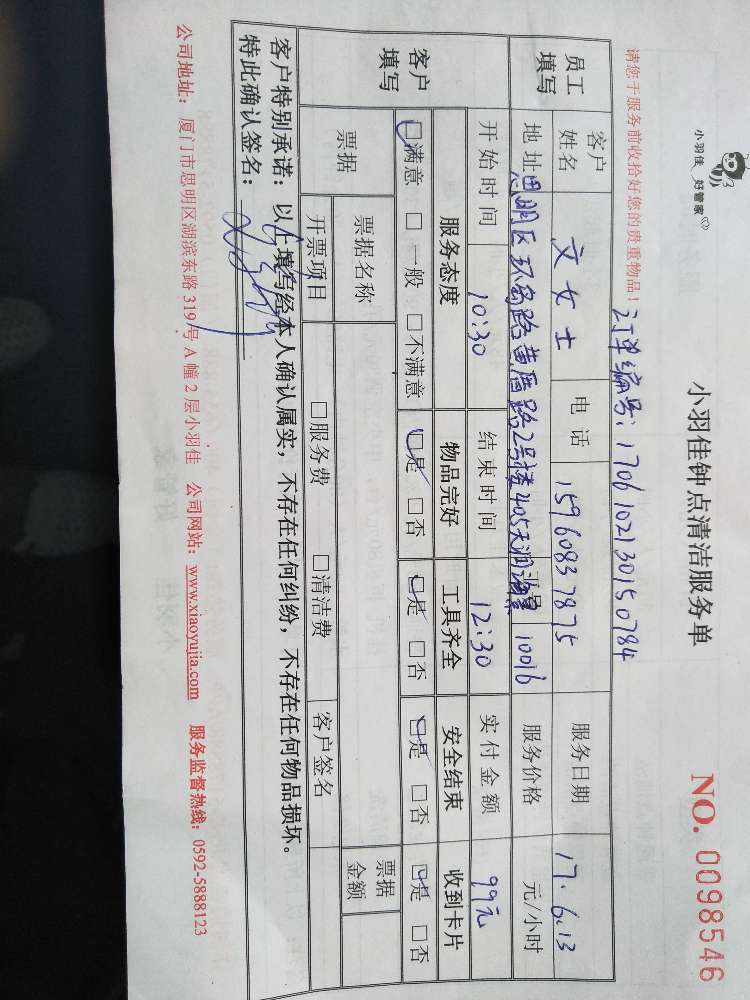 小羽佳 好管家
小羽佳钟点清洁服务单
NO. 0098546
请您于服务前收拾好您的贵重物品！ 订单编号：1706102130150784
员工填写
客户姓名 文女士 电话 15960837875 服务日期 17.6.13
地址 思明区环岛路黄厝路2号楼405天润海景 员号 10016 服务价格 元/小时
开始时间 10:30 结束时间 12:30 实付金额 99元
客户填写
服务态度 物品完好 工具齐全 安全结束 收到卡片
□满意 □一般 □不满意 □是 □否 □是 □否 □是 □否 □是 □否
票据 票据名称 票据金额
开票项目 □服务费 □清洁费 客户签名
客户特别承诺：以上填写经本人确认属实，不存在任何纠纷，不存在任何物品损坏。
特此确认签名：
公司地址：厦门市思明区湖滨东路319号A幢2层小羽佳 公司网站：www.xiaoyujia.com 服务监督热线：0592-5888123